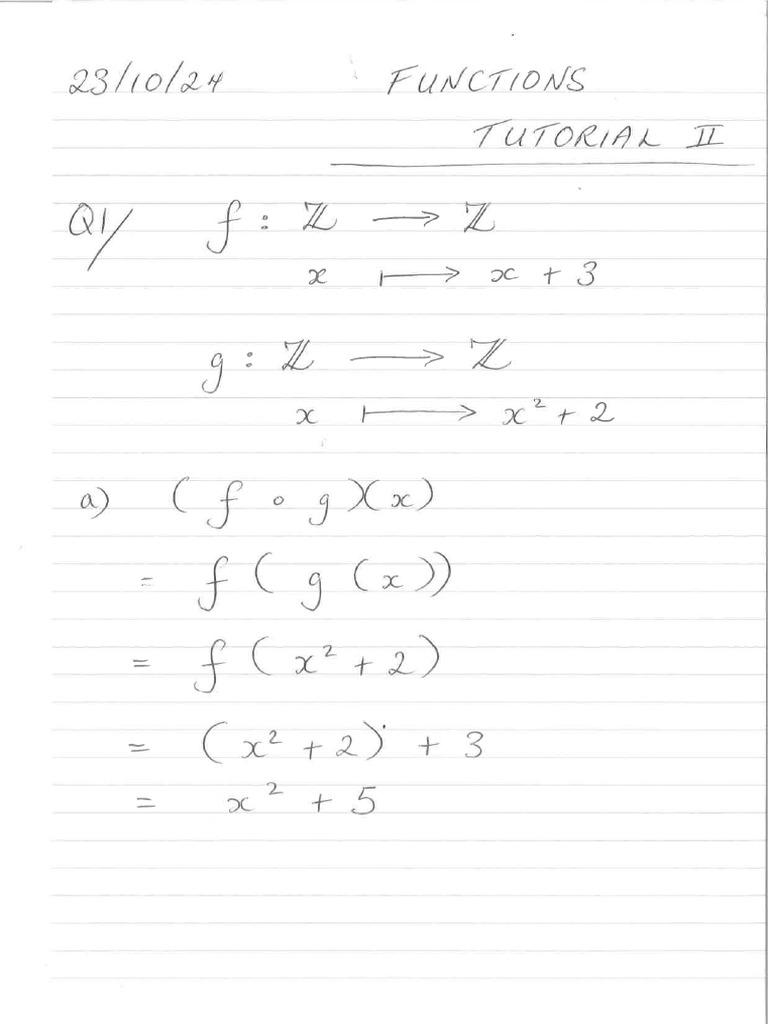 23/10/24 FUNCTIONS
TUTORIAL II
Q1/ f : ℤ ⟶ ℤ
x ⟼ x + 3
g : ℤ ⟶ ℤ
x ⟼ x² + 2
a) (f ∘ g)(x)
= f(g(x))
= f(x² + 2)
= (x² + 2) + 3
= x² + 5